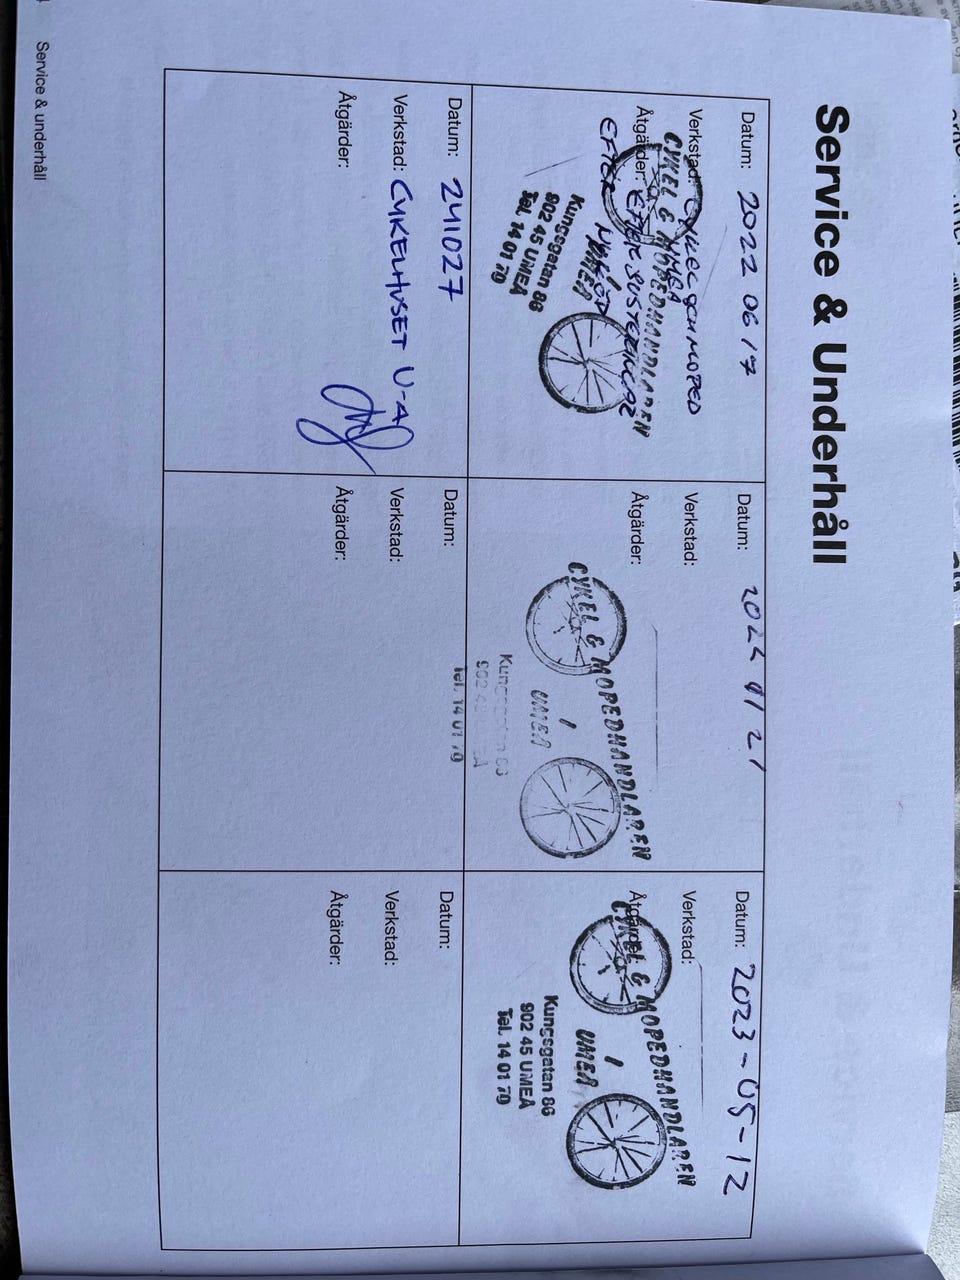 Service & Underhåll
Datum: 2022 06 17
Verkstad: CYKEL OCH MOPED
UMEÅ
Åtgärder: EFTERJUSTERINGAR
EFTER MÅNAD
CYKEL & MOPEDHANDLAREN
I
UMEÅ
Kungsgatan 86
902 45 UMEÅ
Tel. 14 01 70
Datum: 2024 01 21
Verkstad:
Åtgärder:
CYKEL & MOPEDHANDLAREN
I
UMEÅ
Kungsgatan 86
902 45 UMEÅ
Tel. 14 01 70
Datum: 2023-05-12
Verkstad:
Åtgärder:
CYKEL & MOPEDHANDLAREN
I
UMEÅ
Kungsgatan 86
902 45 UMEÅ
Tel. 14 01 70
Datum: 241027
Verkstad: CYKELHUSET U-Å
Åtgärder:
Datum:
Verkstad:
Åtgärder:
Datum:
Verkstad:
Åtgärder:
Service & underhåll